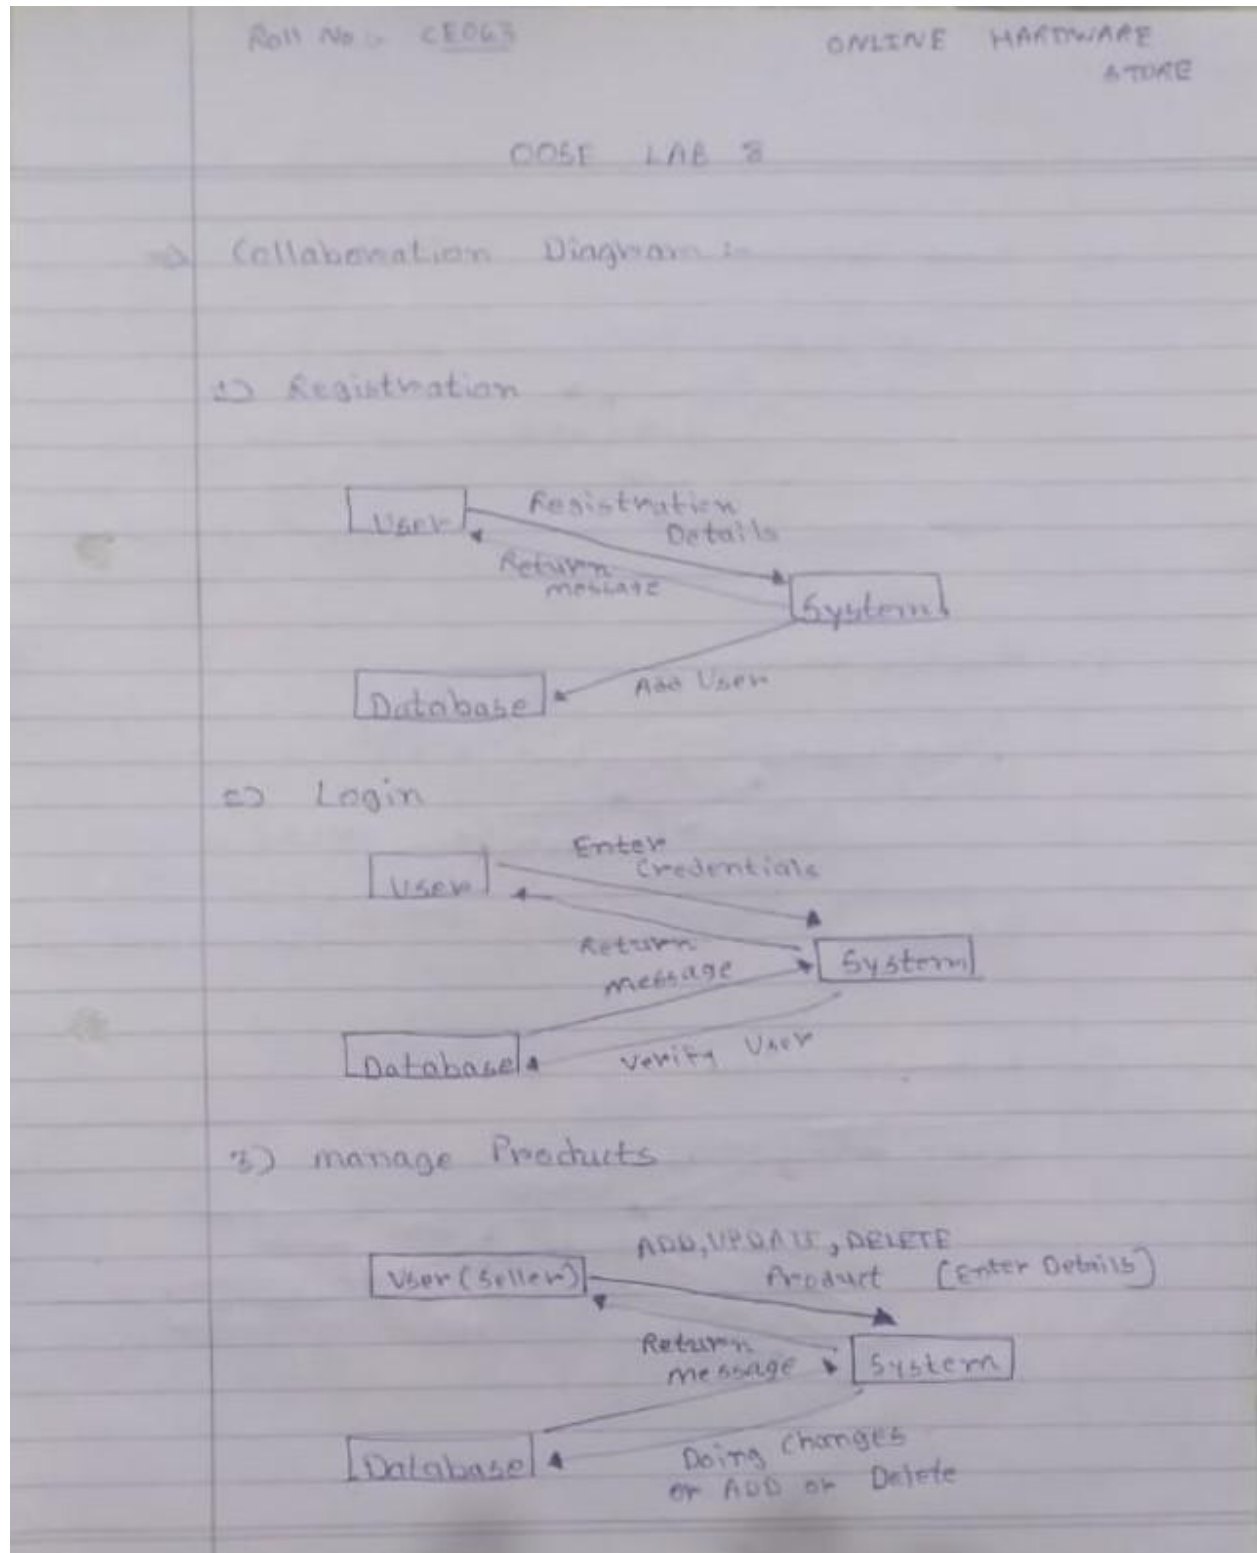 Roll No :- CE063
ONLINE HARDWARE
STORE
OOSE LAB 8
=> Collaboration Diagram :-
1) Registration
User
Registration
Details
Return
message
System
Add User
Database
2) Login
Enter
Credentials
User
Return
message
System
Database
Verify User
3) manage Products
ADD, UPDATE, DELETE
Product (Enter Details)
User (Seller)
Return
message
System
Database
Doing Changes
or ADD or Delete